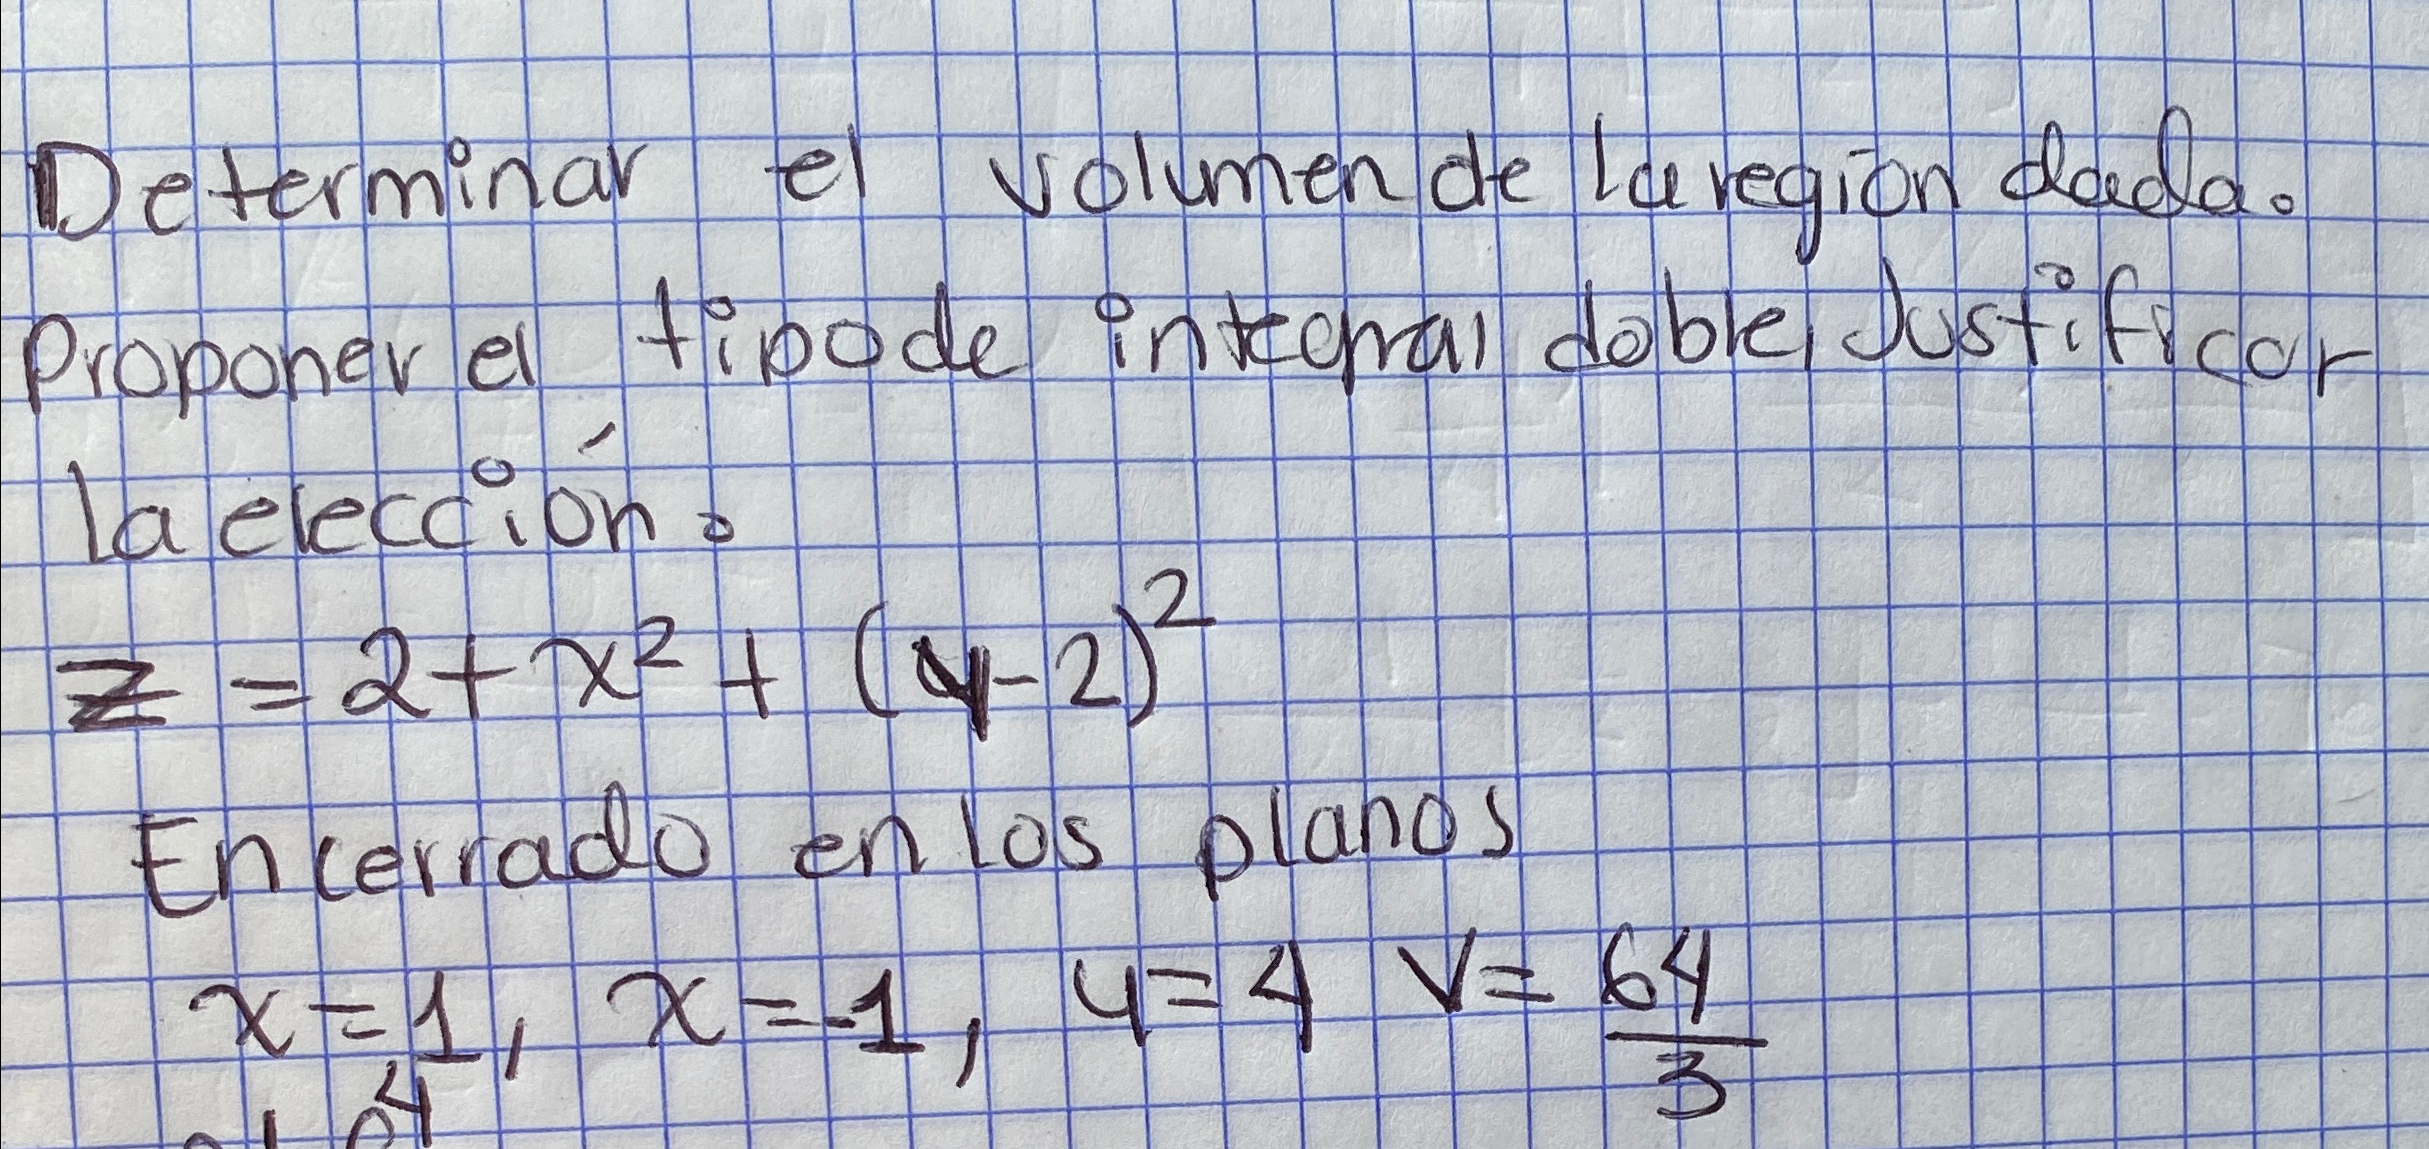 Determinar el volumen de la región dada.
Proponer el tipo de integral doble, Justificar
la elección.
z = 2 + x² + (y-2)²
Encerrado en los planos
x = 1, x = -1, y = 4 V = 64/3
4